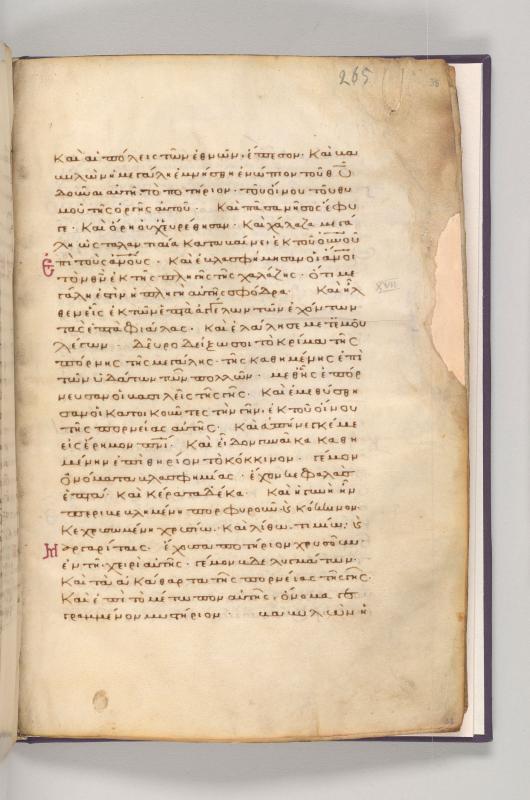 265
38
Καὶ αἱ πόλεις τῶν ἐθνῶν, ἔπεσον· Καὶ βα
βυλὼν ἡ μεγάλη ἐμνήσθη ἐνώπιον τοῦ θυ
δοῦναι αὐτῆ, τὸ ποτήριον τοῦ οἴνου τοῦ θυ
μοῦ τῆς ὀργῆς αὐτοῦ· Καὶ πᾶσα νῆσος ἔφυ
γε· Καὶ ὄρη οὐχ εὑρέθησαν· Καὶ χάλαζα μεγά
λη ὡς ταλαντιαία καταβαίνει ἐκ τοῦ οὐνου
ἐπὶ τοὺς ἀνους· Καὶ ἐβλασφήμησαν οἱ ἀνοι
τὸν θν ἐκ τῆς πληγῆς τῆς χαλάζης· Ὅτι με
γάλη ἐστὶν ἡ πληγὴ αὐτῆς σφόδρα· Καὶ ἦλ
XVII
θεν εἷς ἐκ τῶν ἑπτὰ ἀγγέλων τῶν ἐχόντων
τὰς ἑπτὰ φιάλας· Καὶ ἐλάλησε μετ' ἐμοῦ
λέγων· Δεῦρο δείξω σοι τὸ κρίμα τῆς
πόρνης τῆς μεγάλης· τῆς καθημένης ἐπὶ
τῶν ὑδάτων τῶν πολλῶν· μεθ' ἧς ἐπόρ
νευσαν οἱ βασιλεῖς τῆς γῆς· Καὶ ἐμεθύσθη
σαν οἱ κατοικοῦντες τὴν γῆν, ἐκ τοῦ οἴνου
τῆς πορνείας αὐτῆς· Καὶ ἀπήνεγκέ με
εἰς ἔρημον πνι· Καὶ εἶδον γυναῖκα καθη
μένην ἐπὶ θηρίον τὸ κόκκινον· γέμον
ὀνόματα βλασφημίας· ἔχον κεφαλὰς
ἑπτὰ· Καὶ κέρατα δέκα· Καὶ ἡ γυνὴ ἦν
περιβεβλημένη πορφυροῦν, καὶ κόκκινον·
Κεχρυσωμένη χρυσίω· Καὶ λίθω τιμίω, καὶ
μαργαρίταις· ἔχουσα ποτήριον χρυσοῦν
ἐν τῆ χειρὶ αὐτῆς· γέμον βδελυγμάτων·
Καὶ τὰ ἀκάθαρτα τῆς πορνείας τῆς γῆς·
Καὶ ἐπὶ τὸ μέτωπον αὐτῆς, ὄνομα γε
γραμμένον μυστήριον· βαβυλὼν ἡ
38